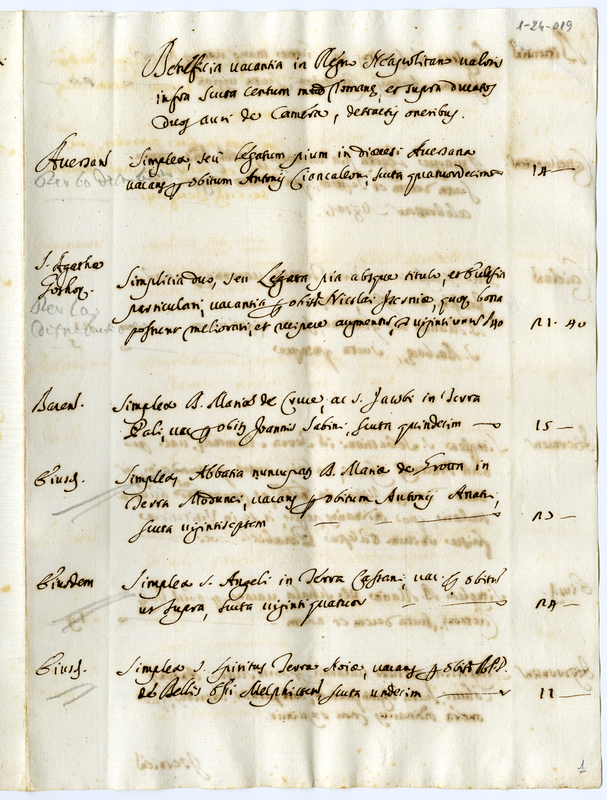 1-24-019
Beneficia vacantia in Regno Neapolitano valoris
infra scuta centum mtæ Romanę, et supra ducatos
duos auri de Camera, detractis oneribus.
Aversan̄ Simplex, seu legatum pium in diocesi Aversana
vacans p obitum Antonij Ciancaleoni, scuta quatuordecim 14 —
S. Agathæ
Gothoȝ. Simplicia duo, seu Legata pia absque titulo, et Ecclesia
particulari, vacantia p obit. Nicolai quoȝ bona
possunt meliorari, et recipere augmentū, viginti unū 21. 40
Baren̄. Simplex B. Mariæ de Cruce, ac S. Jacobi in Terra
Pali, vac. p obit. Joannis Sabini, scuta quindecim — 15 —
Eiusd. Simplex, Abbatia nuncupaȝ B. Mariæ de Grotta in
Terra Modunei, vacans p obitum Antonij
scuta vigintiseptem —
Eiusdem Simplex S. Angeli in Terra Cassani, vac. p obitū
ut supra, scuta vigintiquatuor — 24 —
Eiusd. Simplex S. Spiritus Terræ vacans p obit.
de Bellis Melphicten̄, scuta undecim — 11 —
1